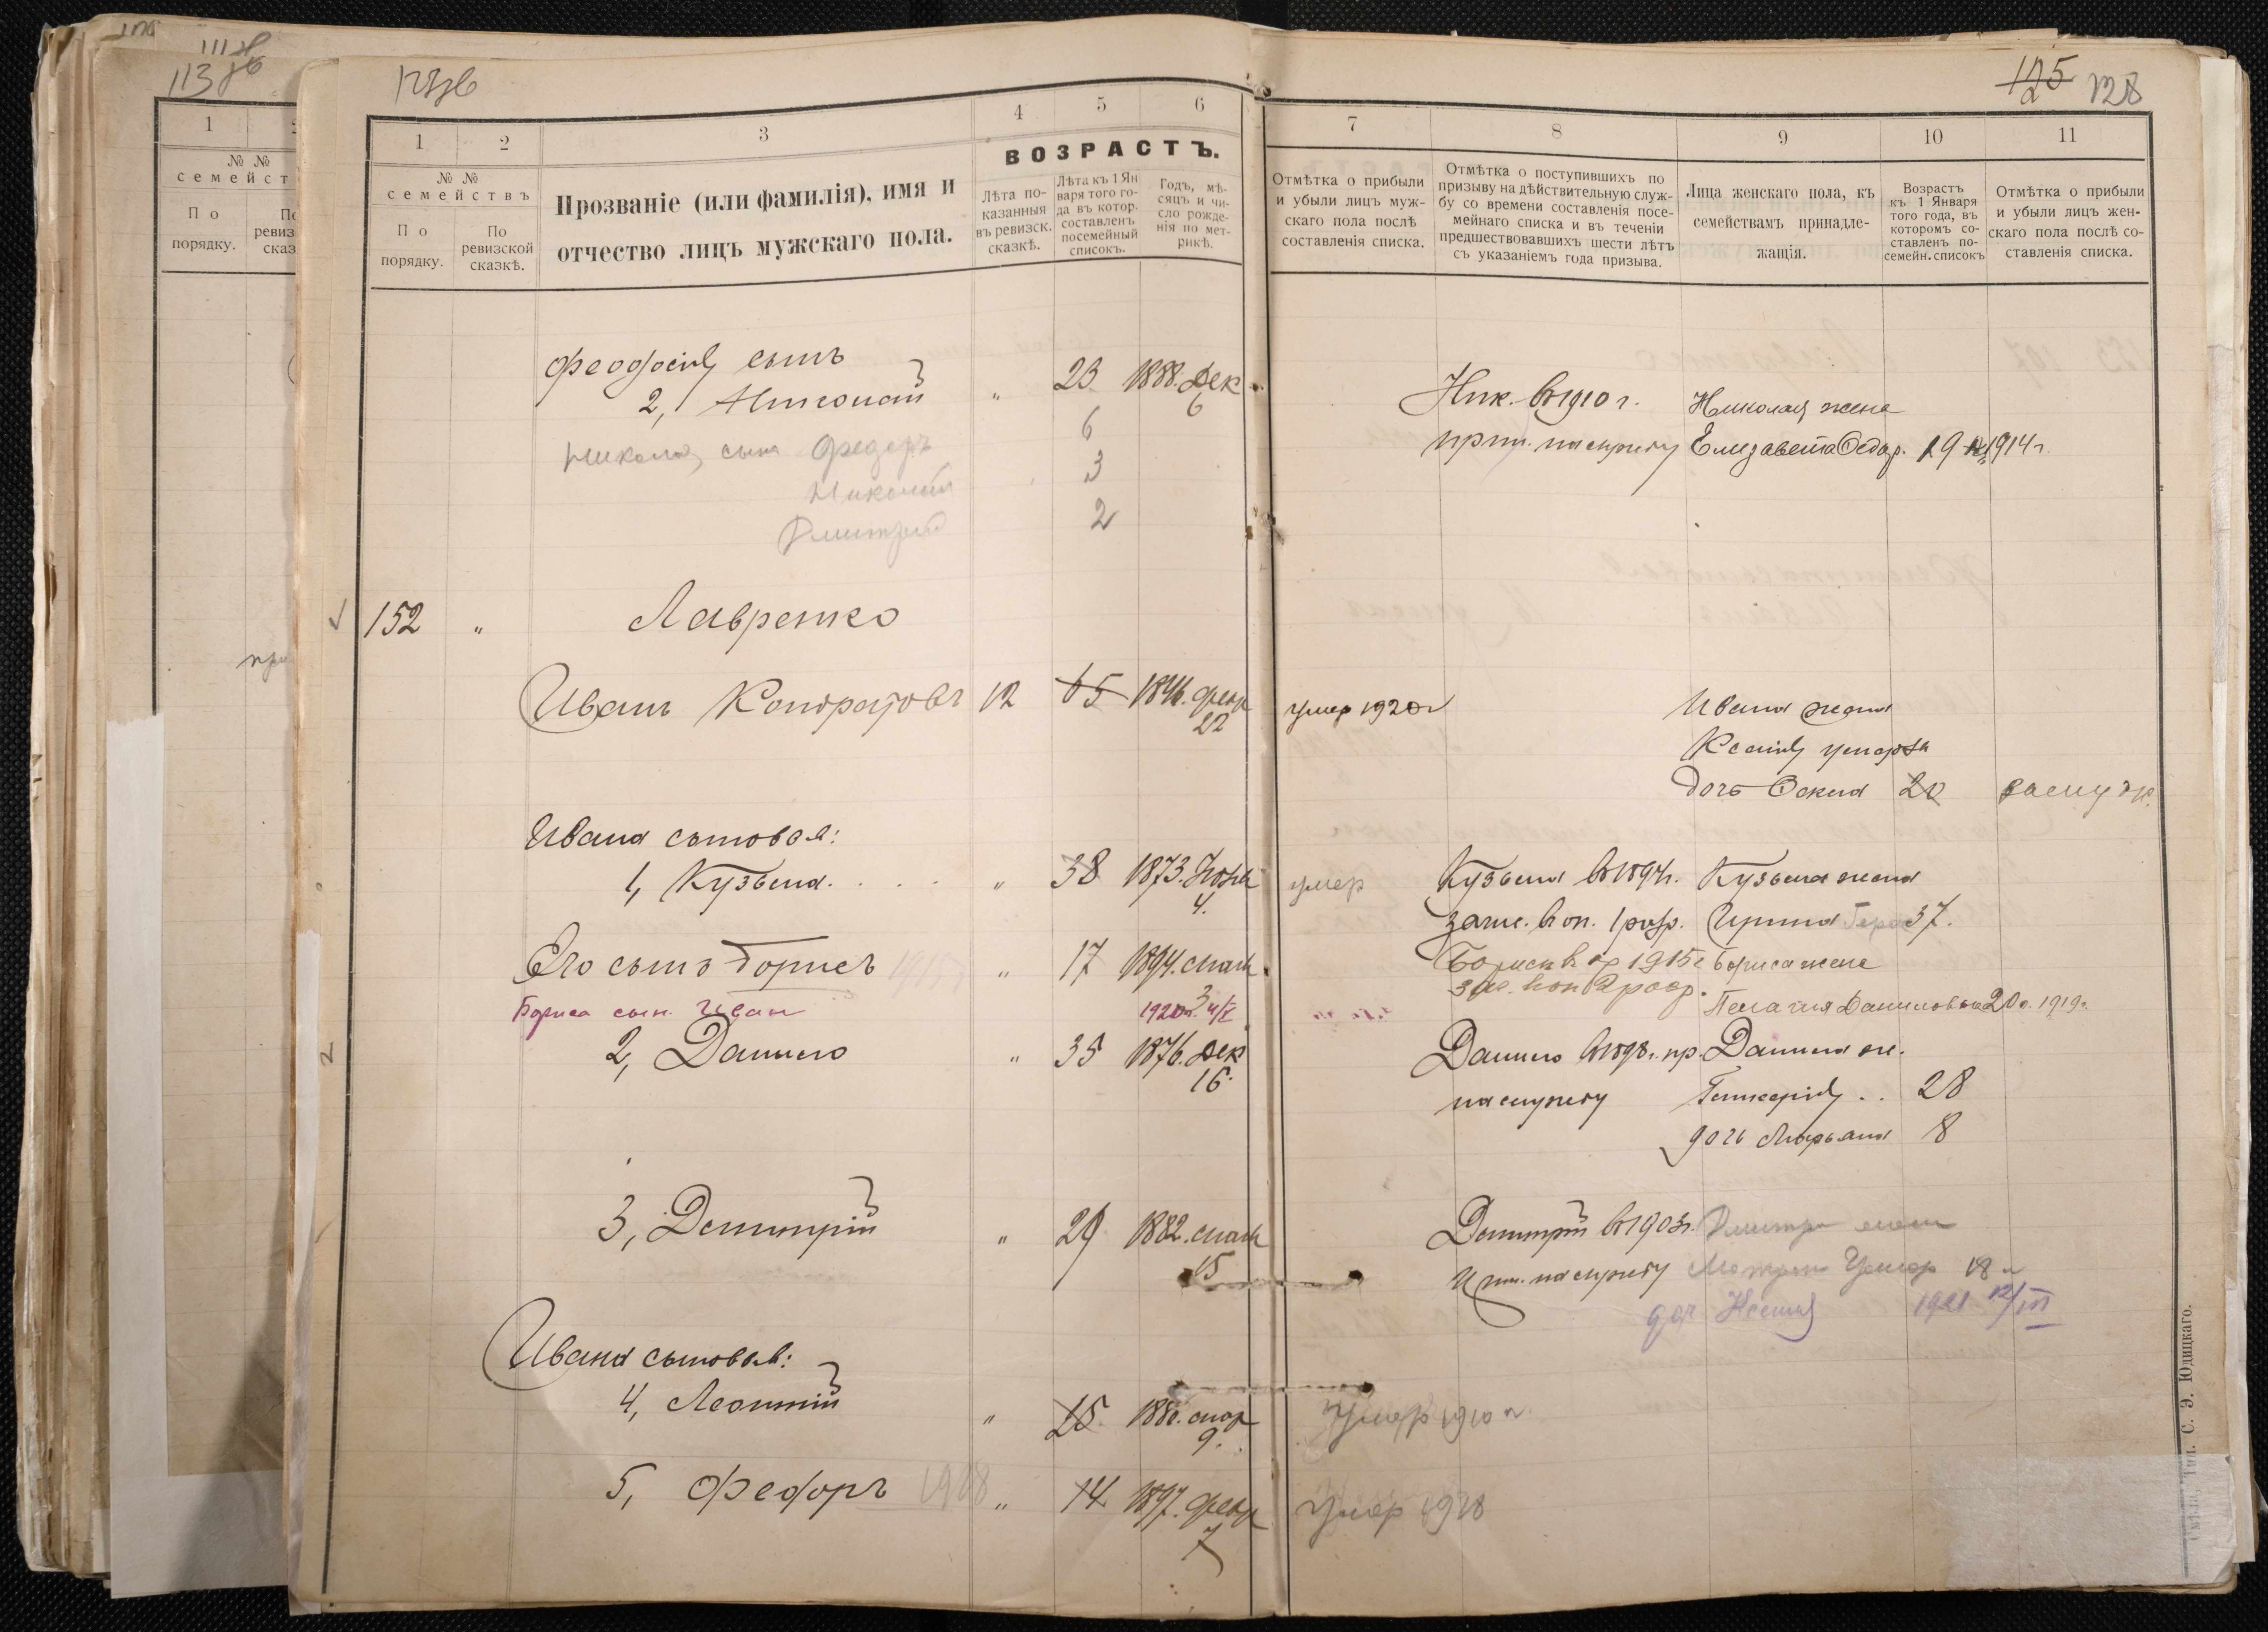 113
125 128
1 2 3 4 5 6 7 8 9 10 11
№ №
семействъ
По порядку.
По ревизской сказкѣ.
Прозваніе (или фамилія), имя и
отчество лицъ мужскаго пола.
ВОЗРАСТЪ.
Лѣта по-
казанныя
въ ревизск.
сказкѣ.
Лѣта къ 1 Ян
варя того го-
да въ котор.
составленъ
посемейный
списокъ.
Годъ, мѣ-
сяцъ и чи-
сло рожде-
нія по мет-
рикѣ.
Отмѣтка о прибыли
и убыли лицъ муж-
скаго пола послѣ
составленія списка.
Отмѣтка о поступившихъ по
призыву на дѣйствительную служ-
бу со времени составленія посе-
мейнаго списка и въ теченіи
предшествовавшихъ шести лѣтъ
съ указаніемъ года призыва.
Лица женскаго пола, къ
семействамъ принадле-
жащія.
Возрастъ
къ 1 Января
того года, въ
которомъ со-
ставленъ по-
семейн. списокъ
Отмѣтка о прибыли
и убыли лицъ жен-
скаго пола послѣ со-
ставленія списка.
Феодосія сынъ
2, Николай " 23 1888. Дек 6
Ник. въ 1910 г. Николая жена
на службу Елизавета Федор. 19 1914 г.
Николая сын Федоръ 6
Николай 3
Дмитрий 2
152 " Лавренко
Иванъ Кондратовъ 12 65 1846. февр 22 умер 1920 г Ивана жена
Ксенія умерла
дочь Фекла 20 замуж.
Ивана сыновья:
1, Кузьма. " 38 1873. Іюня 4. умер Кузьма въ 1894 г. Кузьма жена
зачис. въ оп. 1 разр. Ирина 37.
Его сынъ Борисъ 1915 " 17 1894. мая 3 Борись в 1915 г Бориса жена
2 разр. Пелагия Даниловна 20 л. 1919 г.
Бориса сын. Иван 1920 г.
2, Данило " 35 1876. Дек 16. Данило въ 1898 г. пр. Данила ж.
на службу Гликерія .. 28
дочь Марьяна 8
3, Димитрій " 29 1882. мая 15 Димитрій въ 1903 г. Дмитри жена
на службу 18
доч Ксения 1921 12/III
Ивана сыновья:
4, Леонтій " 25 9. Умер 1910 г.
5, Федоръ 1918 " 14 1897. февр 7 Умер 1918
Тип. С. Э. Юдицкаго.